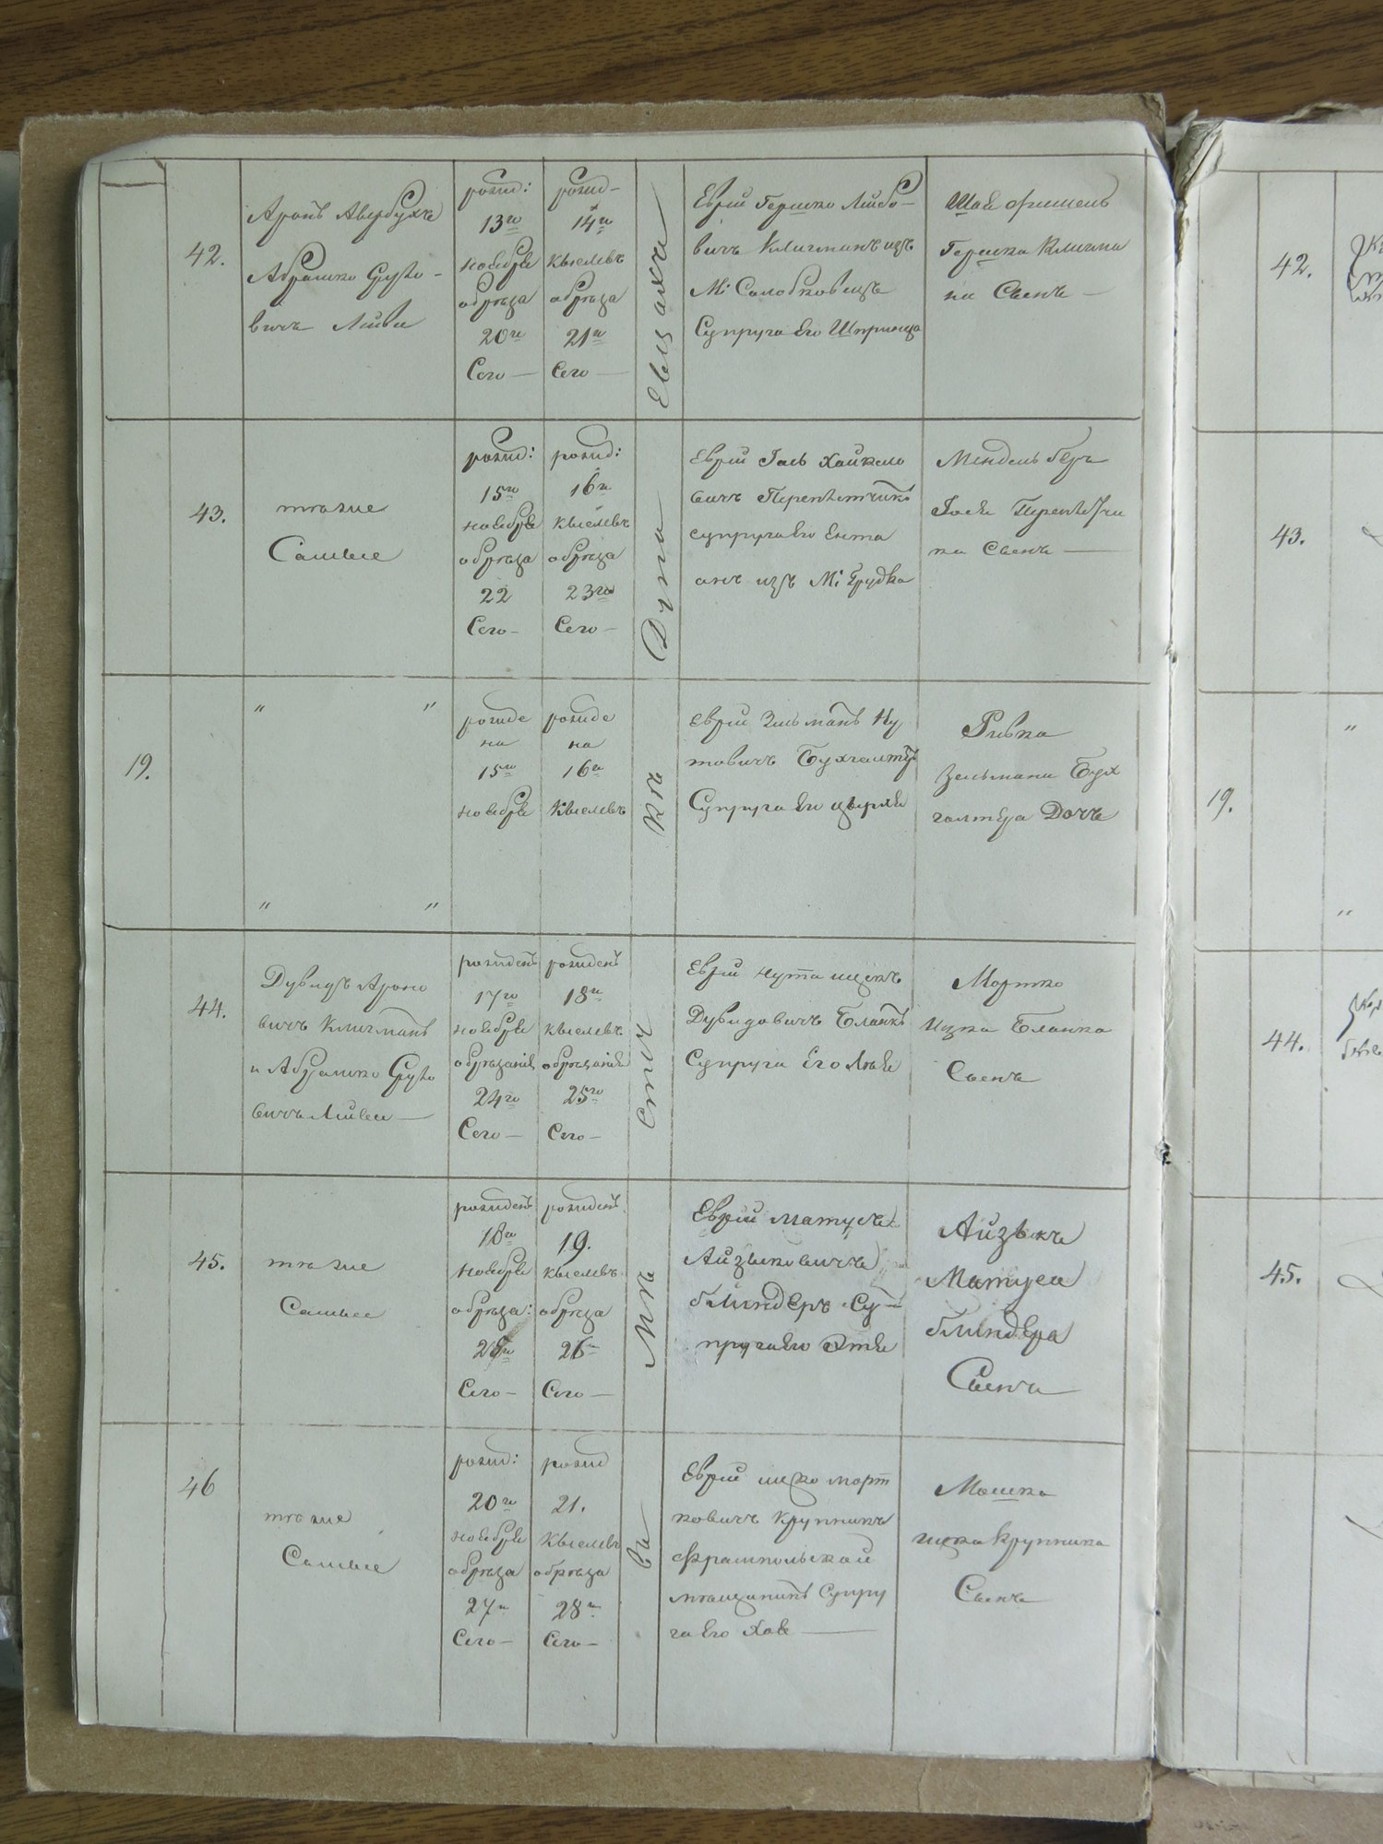 42.
Аронъ Авербухъ
Абрамко Сруло-
вичъ Лийви
рожд:
13го
ноября
обреза
20го
Сего —
рожд-
14го
Кыслевъ
обреза
21го
Сего —
Еврей Гершко Лейбо-
вичъ Клигманъ изъ
М: Солобковецъ
Супруга Его Шпринца
Шая Фишель
Гершка Клигма
на Сынъ —
43.
теже
Самые
рожд:
15го
ноября
обреза
22
Сего —
рожд:
16го
Кыслевъ
обреза
23го
Сего —
Дуна
Еврей Іось Хайкело
вичъ
супруга Его Ента
онъ изъ М:
Мендель Беръ
Іося
ка Сынъ —
19.
" "
" "
рожде
на
15го
ноября
рожде
на
16го
Кыслевъ
Еврей Зельманъ Ну
товичъ Бухгалтеръ
Супруга Его
Ривка
Зельмана Бух
галтера Дочь
44.
Дувидъ Ароно
вичъ Клигманъ
и Абрамко Сруло
вичъ Лийви —
рожденъ
17го
ноября
обрезанія
24го
Сего —
рожденъ
18го
Кыслевъ
обрезанія
25го
Сего —
Еврей Нута Ицекъ
Дувидовичъ Бланкъ
Супруга Его
Мортко
Ицка Бланка
Сынъ
45.
теже
Самые
рожденъ
18го
ноября
обреза:
25го
Сего —
рожденъ
19.
Кыслевъ
обреза
26
Сего —
Еврей Матусъ
Айзыковичъ
блиндеръ Су-
пруга Его Этя
Айзыкъ
Матуса
блиндера
Сынъ
46
теже
Самые
рожд:
20го
ноября
обреза
27го
Сего —
рожд
21.
Кыслевъ
обреза
28го
Сего —
Еврей Ицко Морт
ковичъ Крупникъ
Фрампольской
мещанинъ Супру
га Его Хая —
Мошка
Ицка Крупника
Сынъ
42.
43.
19.
"
"
44.
45.